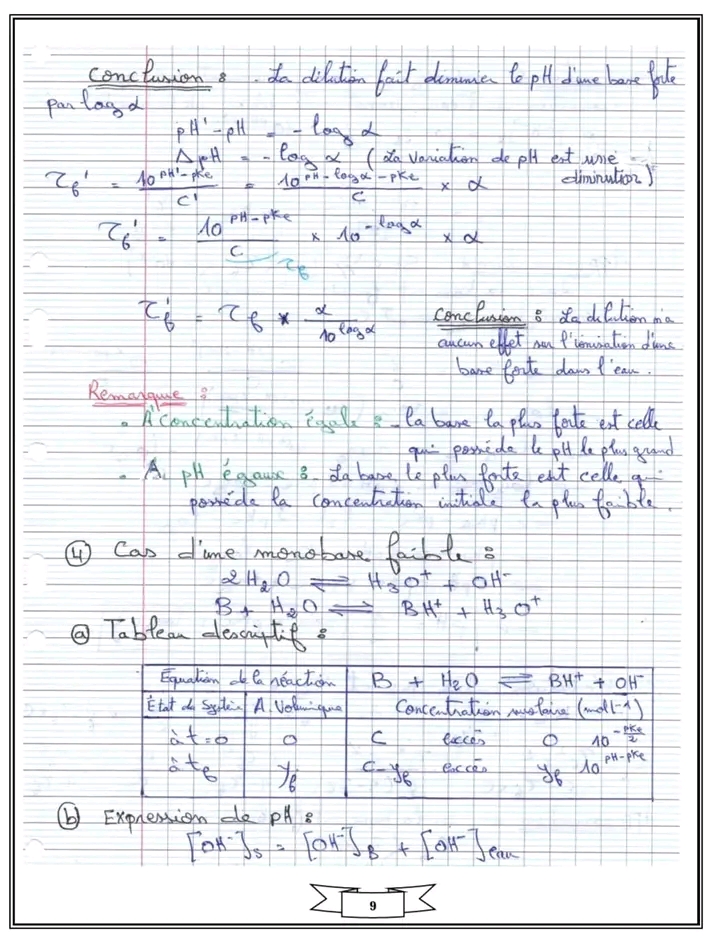 Conclusion : . La dilution fait diminuer le pH d'une base forte
par log α
pH' - pH = - log α
ΔpH = - log α (La variation de pH est une diminution)
τf' = 10^(pH'-pKe) / C' = 10^(pH - log α - pKe) / C × α
τf' = 10^(pH-pKe) / C × 10^(-log α) × α
τf
τf' = τf * α / 10^(log α)
Conclusion : La dilution n'a
aucun effet sur l'ionisation d'une
base forte dans l'eau.
Remarque :
• A concentration égale : - la base la plus forte est celle
qui possède le pH le plus grand
• A pH égaux : - La base le plus forte est celle qui
possède la concentration initiale la plus faible.
④ Cas d'une monobase faible :
2H₂O ⇌ H₃O⁺ + OH⁻
B + H₂O ⇌ BH⁺ + H₃O⁺
ⓐ Tableau descriptif :
Equation de la réaction B + H₂O ⇌ BH⁺ + OH⁻
État du Système A. Volumique Concentration molaire (mol L⁻¹)
à t=0 0 C excès 0 10^(-pKe/2)
à tf yf C-yf excès yf 10^(pH-pKe)
ⓑ Expression de pH :
[OH⁻]s = [OH⁻]B + [OH⁻]eau
9